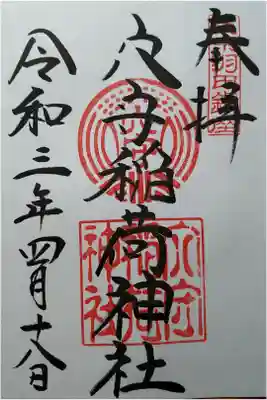 奉拝
東羽田鎮座
穴守稲荷神社
穴守稲荷神社
令和三年四月十八日